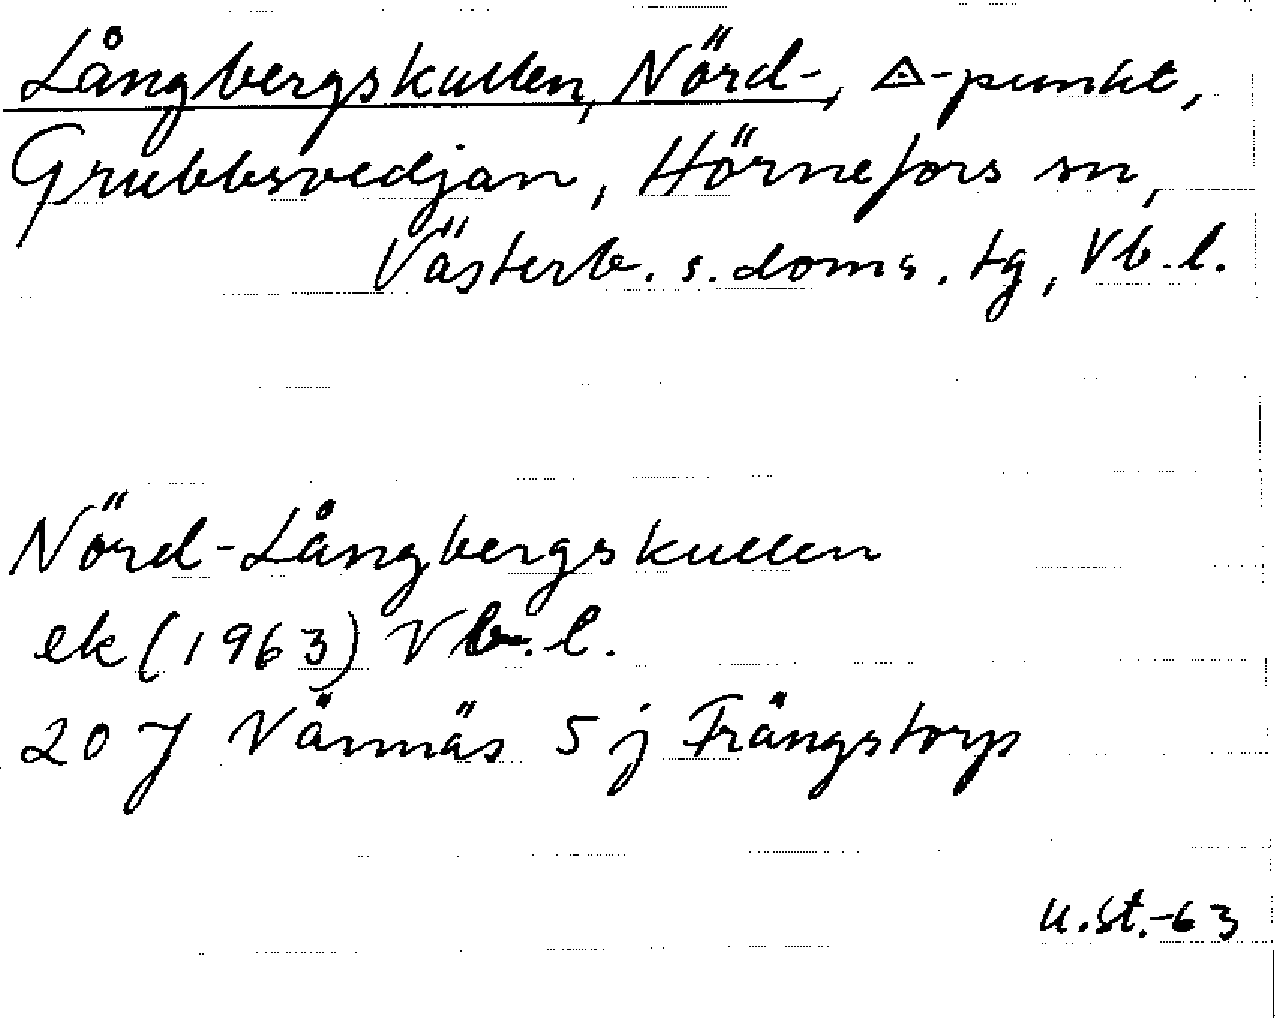 Långbergskullen, Nörd-, △-punkt,
Grubbsvedjan, Hörnefors sn,
Västerb. s. doms. tg, Vb. l.
Nörd-Långbergskullen
ek (1963) Vb. l.
20 J Vännäs 5 j Frängstorp
u.st.-63